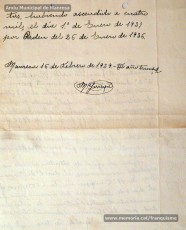 Arxiu Municipal de Manresa
tres, habiendo ascendido a cuatro
mil, el dia 1º de Enero de 1937
por Orden del 25 de Enero de 1936
Manresa 15 de Febrero de 1939 - III año Triunfal
www.memoria.cat/franquisme